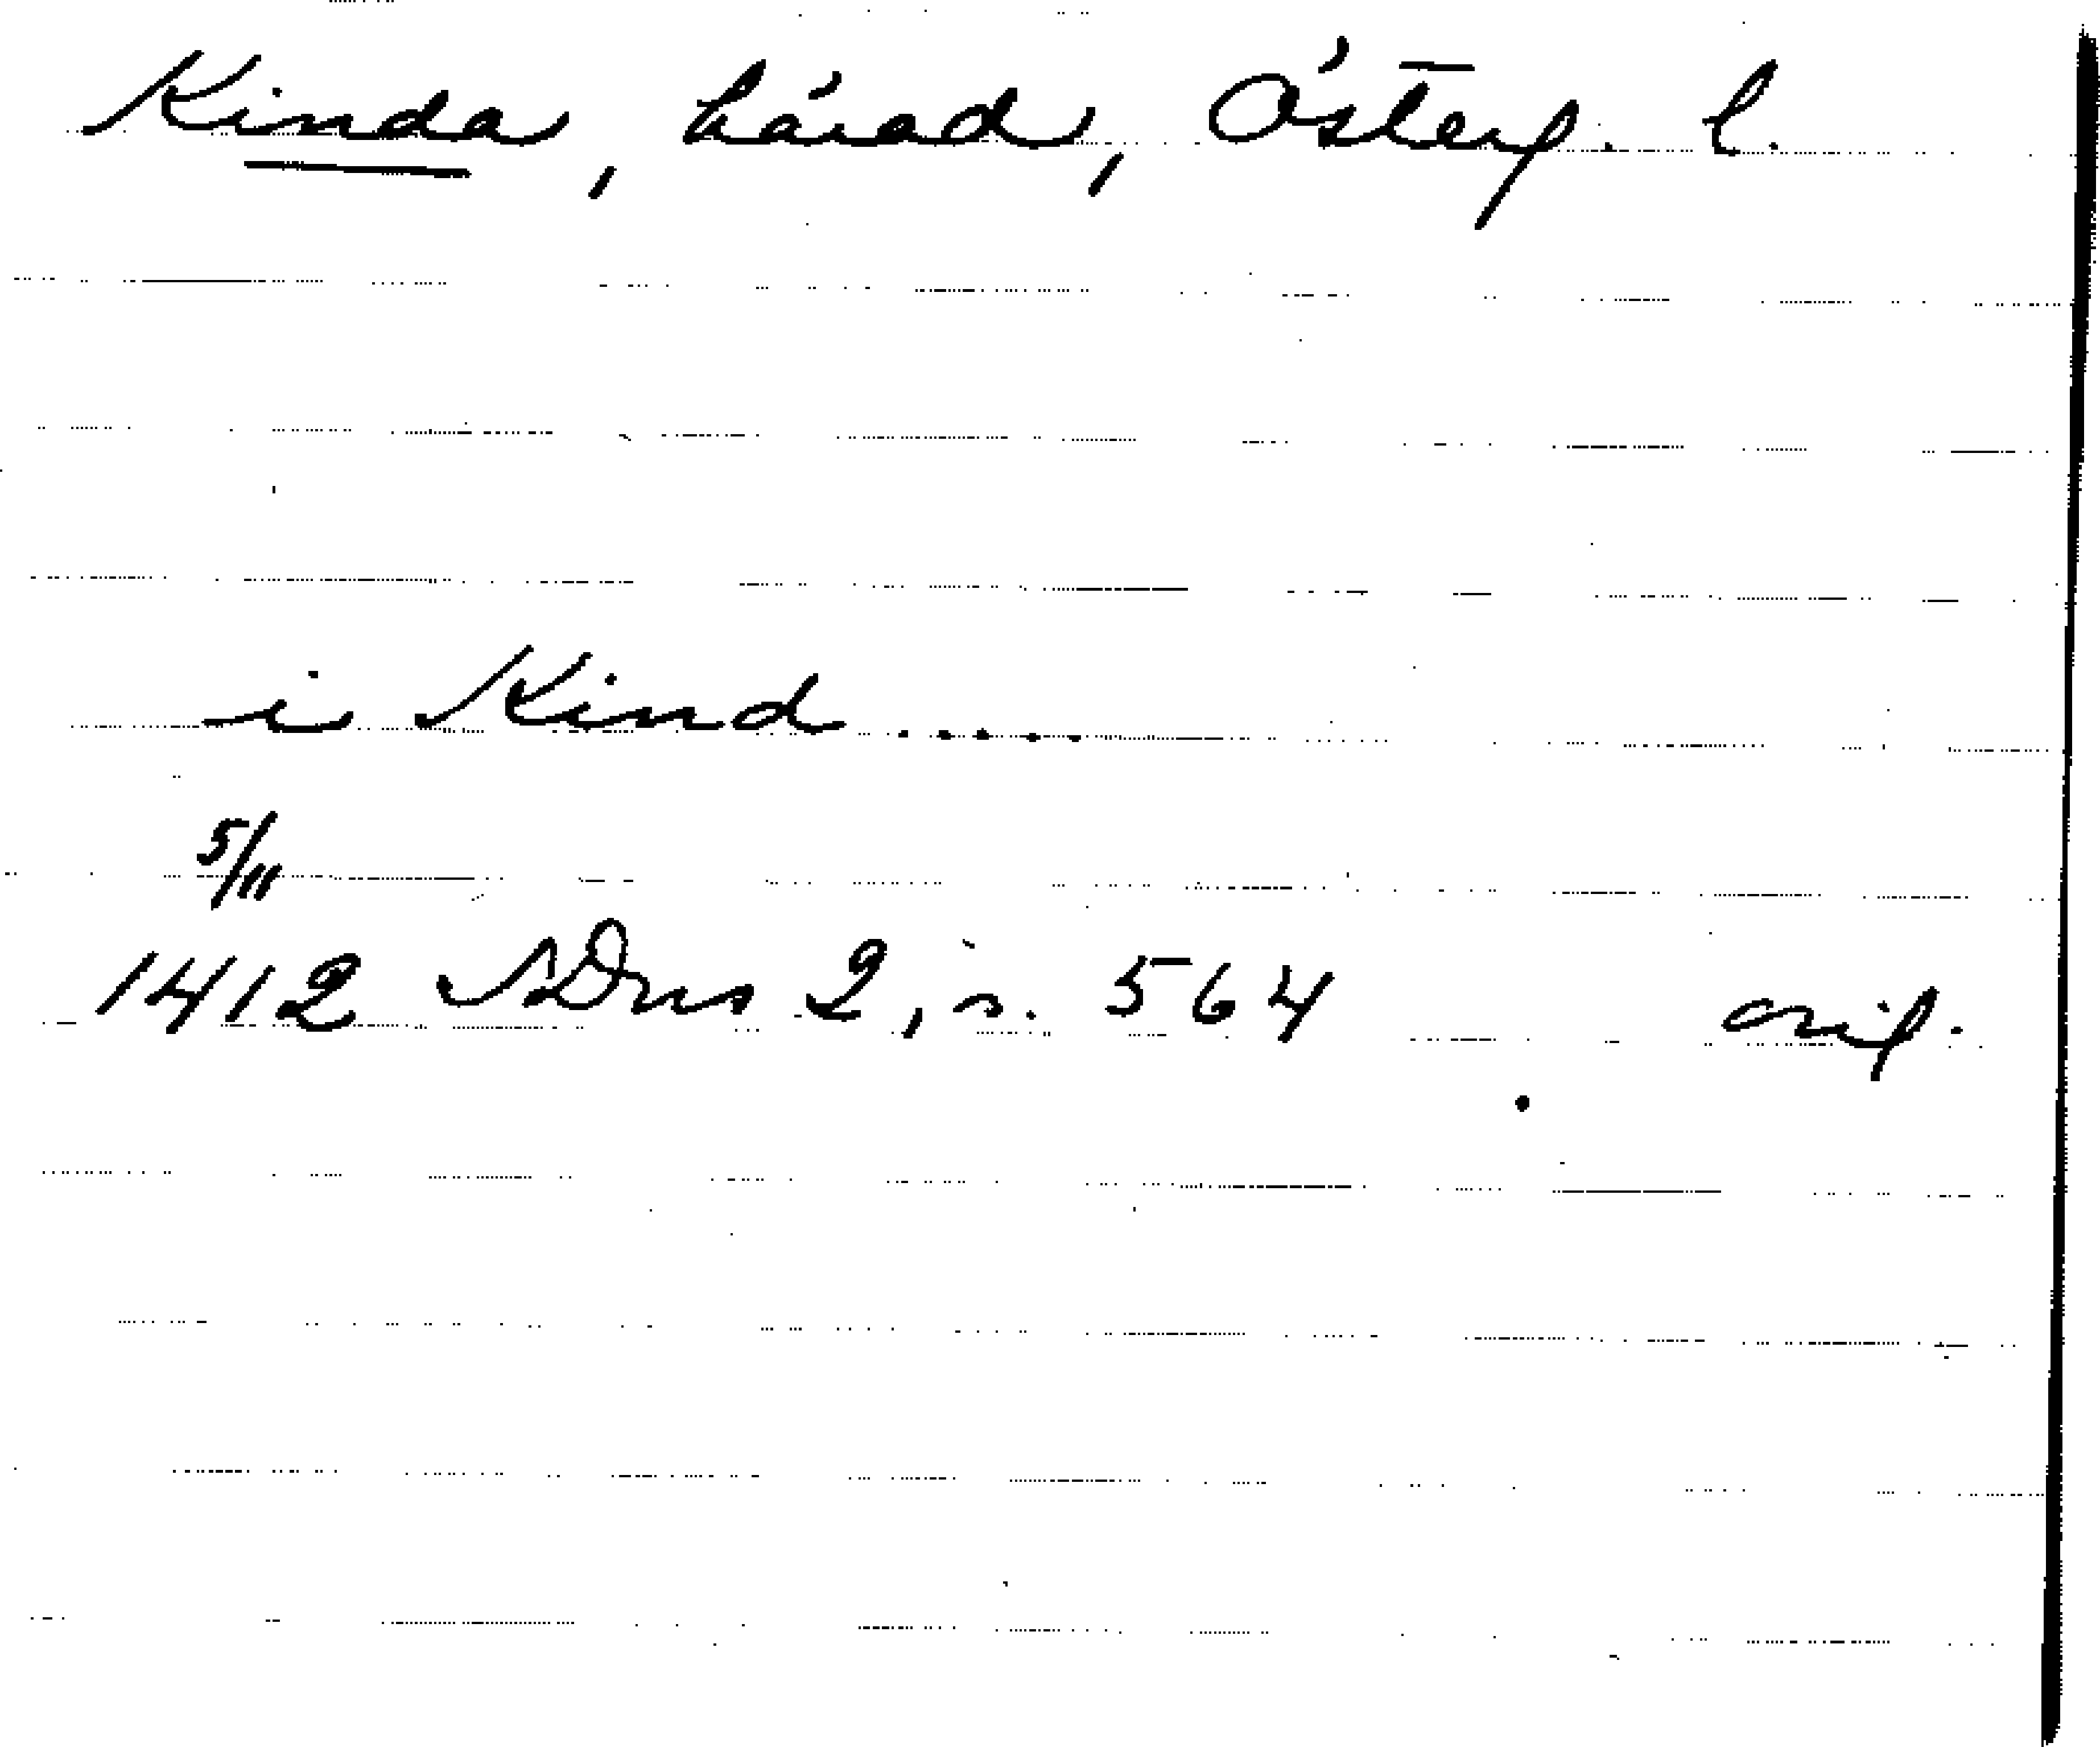 Kinda, härad, Österg. l.
i Kind .....
5/11
1412 SDns 2, s. 564 orig.